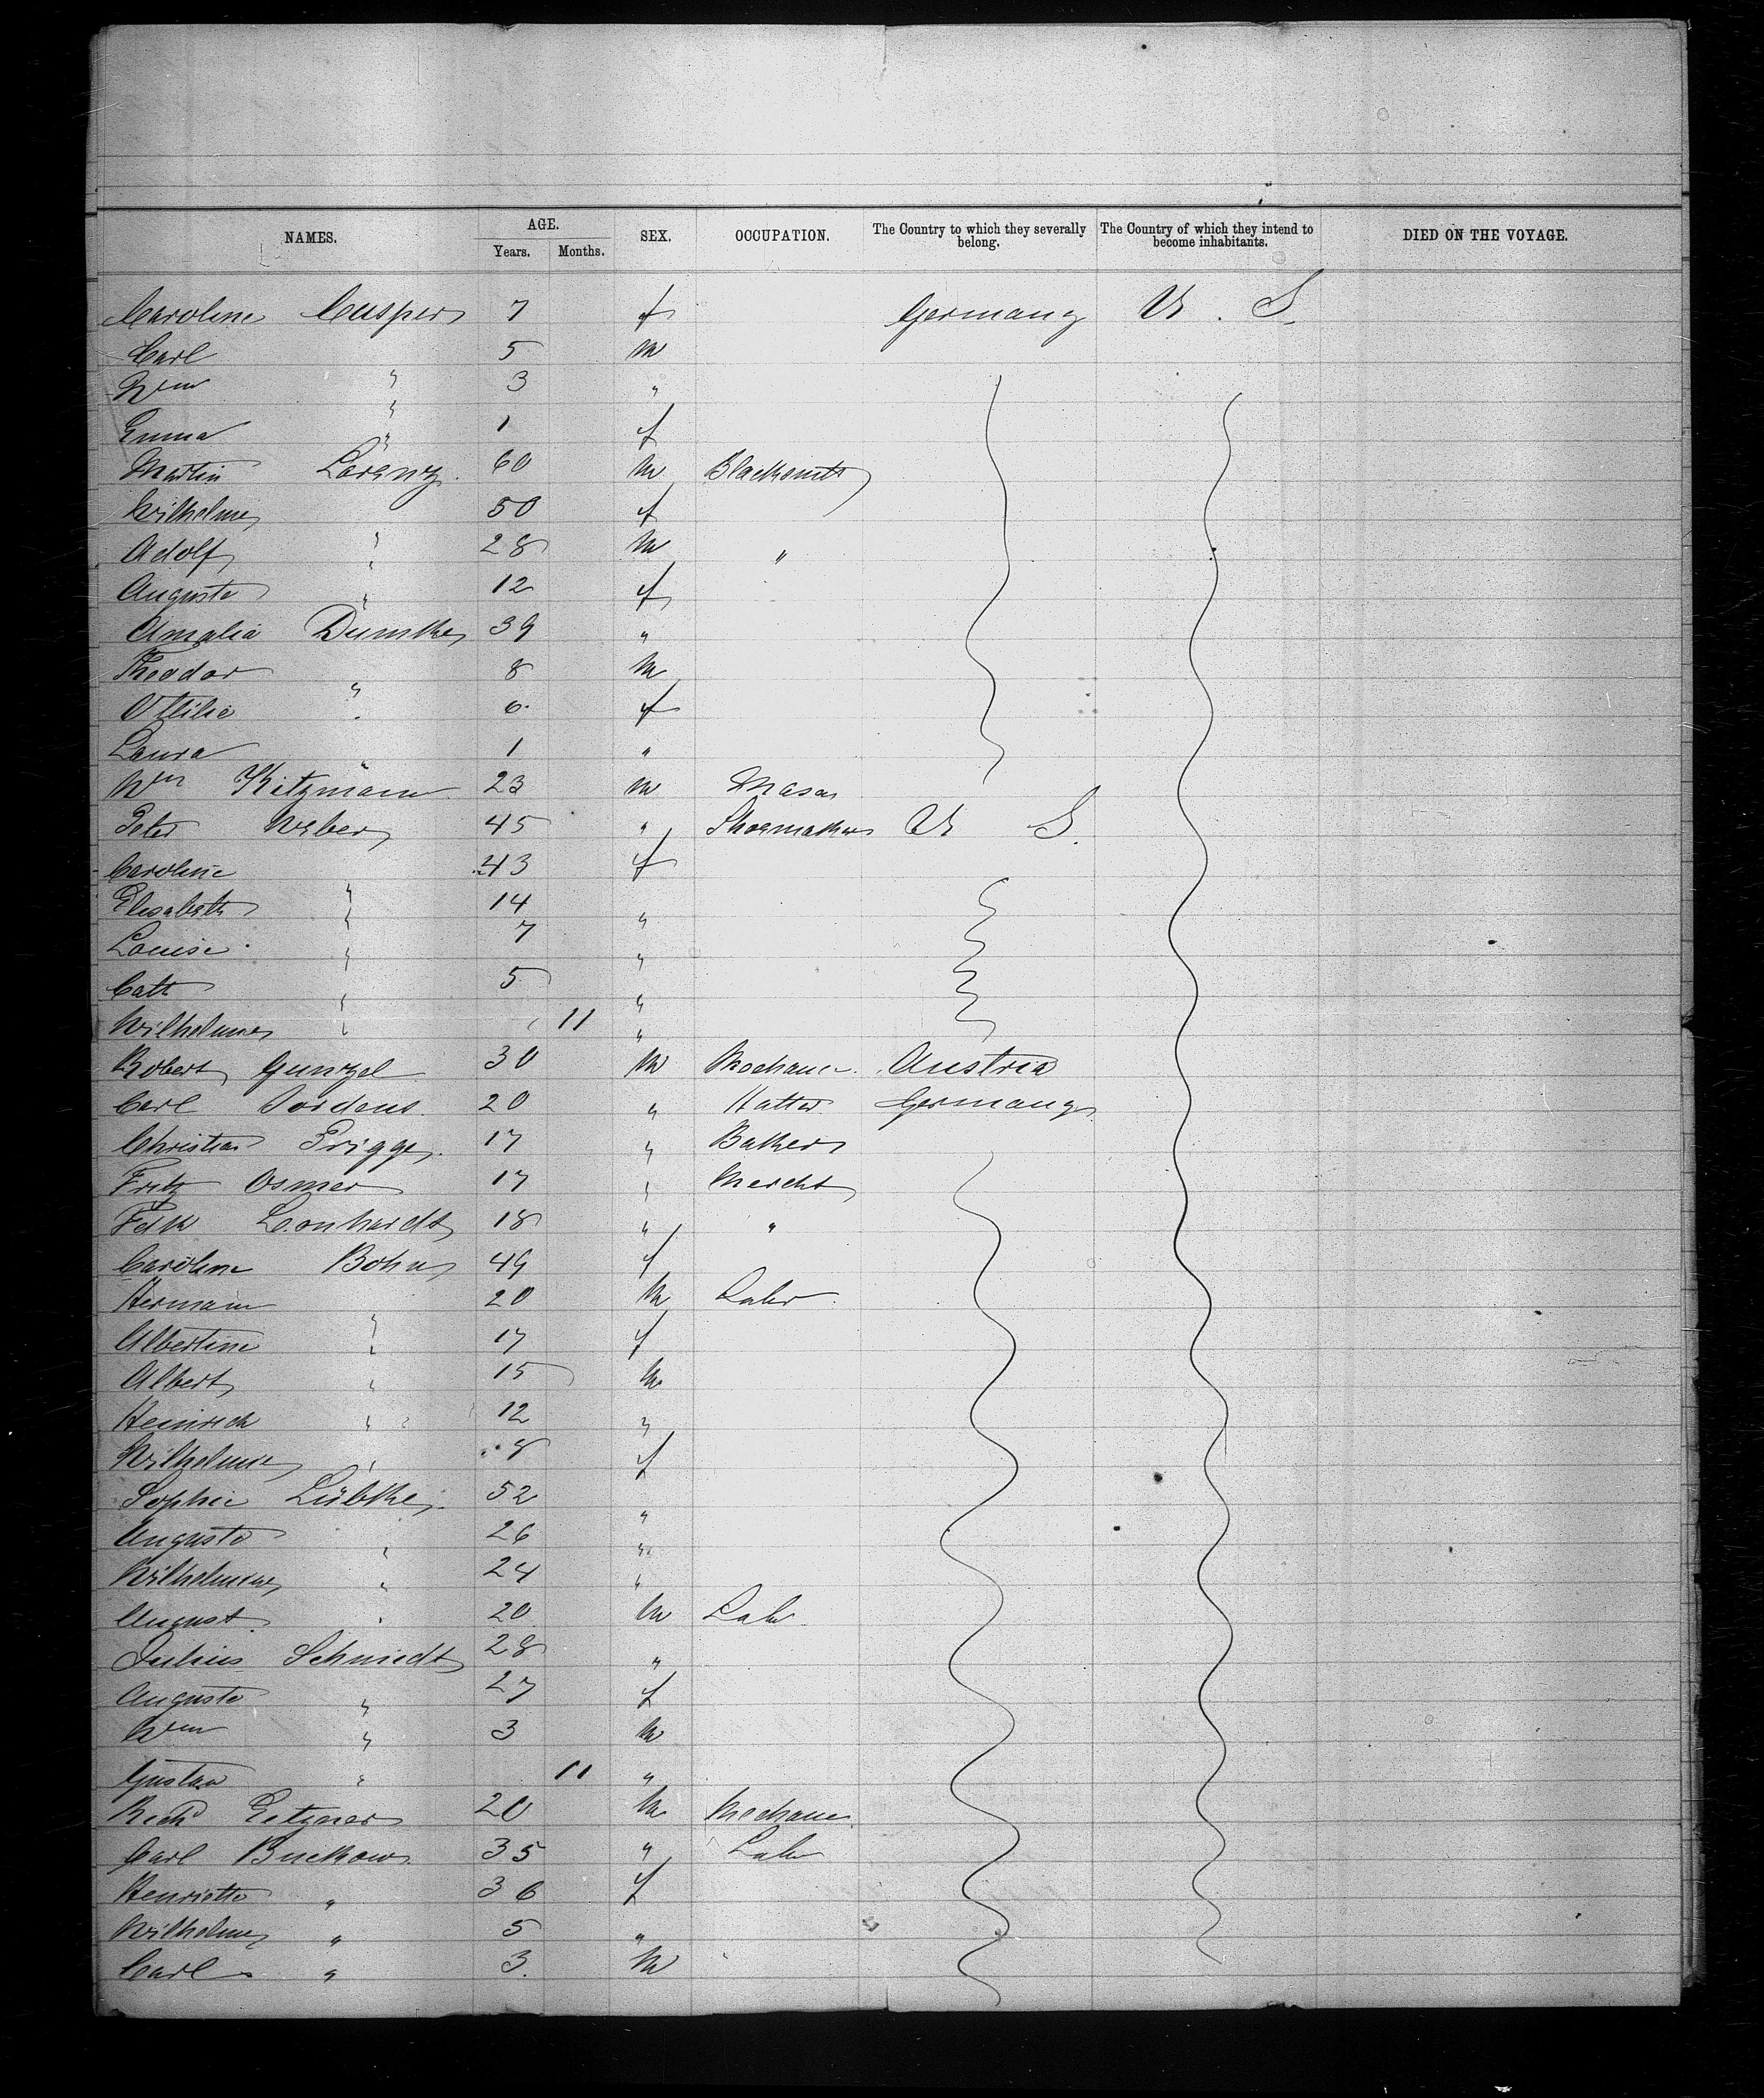 NAMES. AGE. SEX. OCCUPATION. The Country to which they severally belong. The Country of which they intend to become inhabitants. DIED ON THE VOYAGE.
Years. Months.
Caroline Casper 7 f Germany U. S.
Carl 5 m
Wm " 3 "
Emma " 1 f
Martin Lorenz 60 m Blacksmith
Wilhelme 50 f
Adolf " 28 m "
Auguste " 12 f
Amalia Dumke 39 "
Theodor 8 m
Ottilie " 6 f
Laura 1 "
Wm Kitzmann 23 m Mason
Peter Weber 45 " Shoemaker U S.
Caroline 43 f
Elisabeth " 14 "
Louise " 7 "
Cath " 5 "
Wilhelmne " 11 "
Robert Gunzel 30 m Mechanic Austria
Carl Jordens 20 " Hatter Germany
Christian Prigge 17 " Baker
Fritz Osmer 17 " Mercht
Fdk Leonhardt 18 " "
Caroline Bohn 49 f
Hermann 20 m Labr
Albertine " 17 f
Albert " 15 m
Heinrich " 12 "
Wilhelmne " 8 f
Sophie Lübke 52 "
Auguste 26 "
Wilhelmine " 24 "
August " 20 m Labr
Julius Schmidt 28 "
Auguste " 27 f
Wm " 3 m
Gustav " 11 "
Richd 20 m Mechanic
Carl Buckow 35 " Labr
Henriette " 36 f
Wilhelme " 5 "
Carl " 3 m